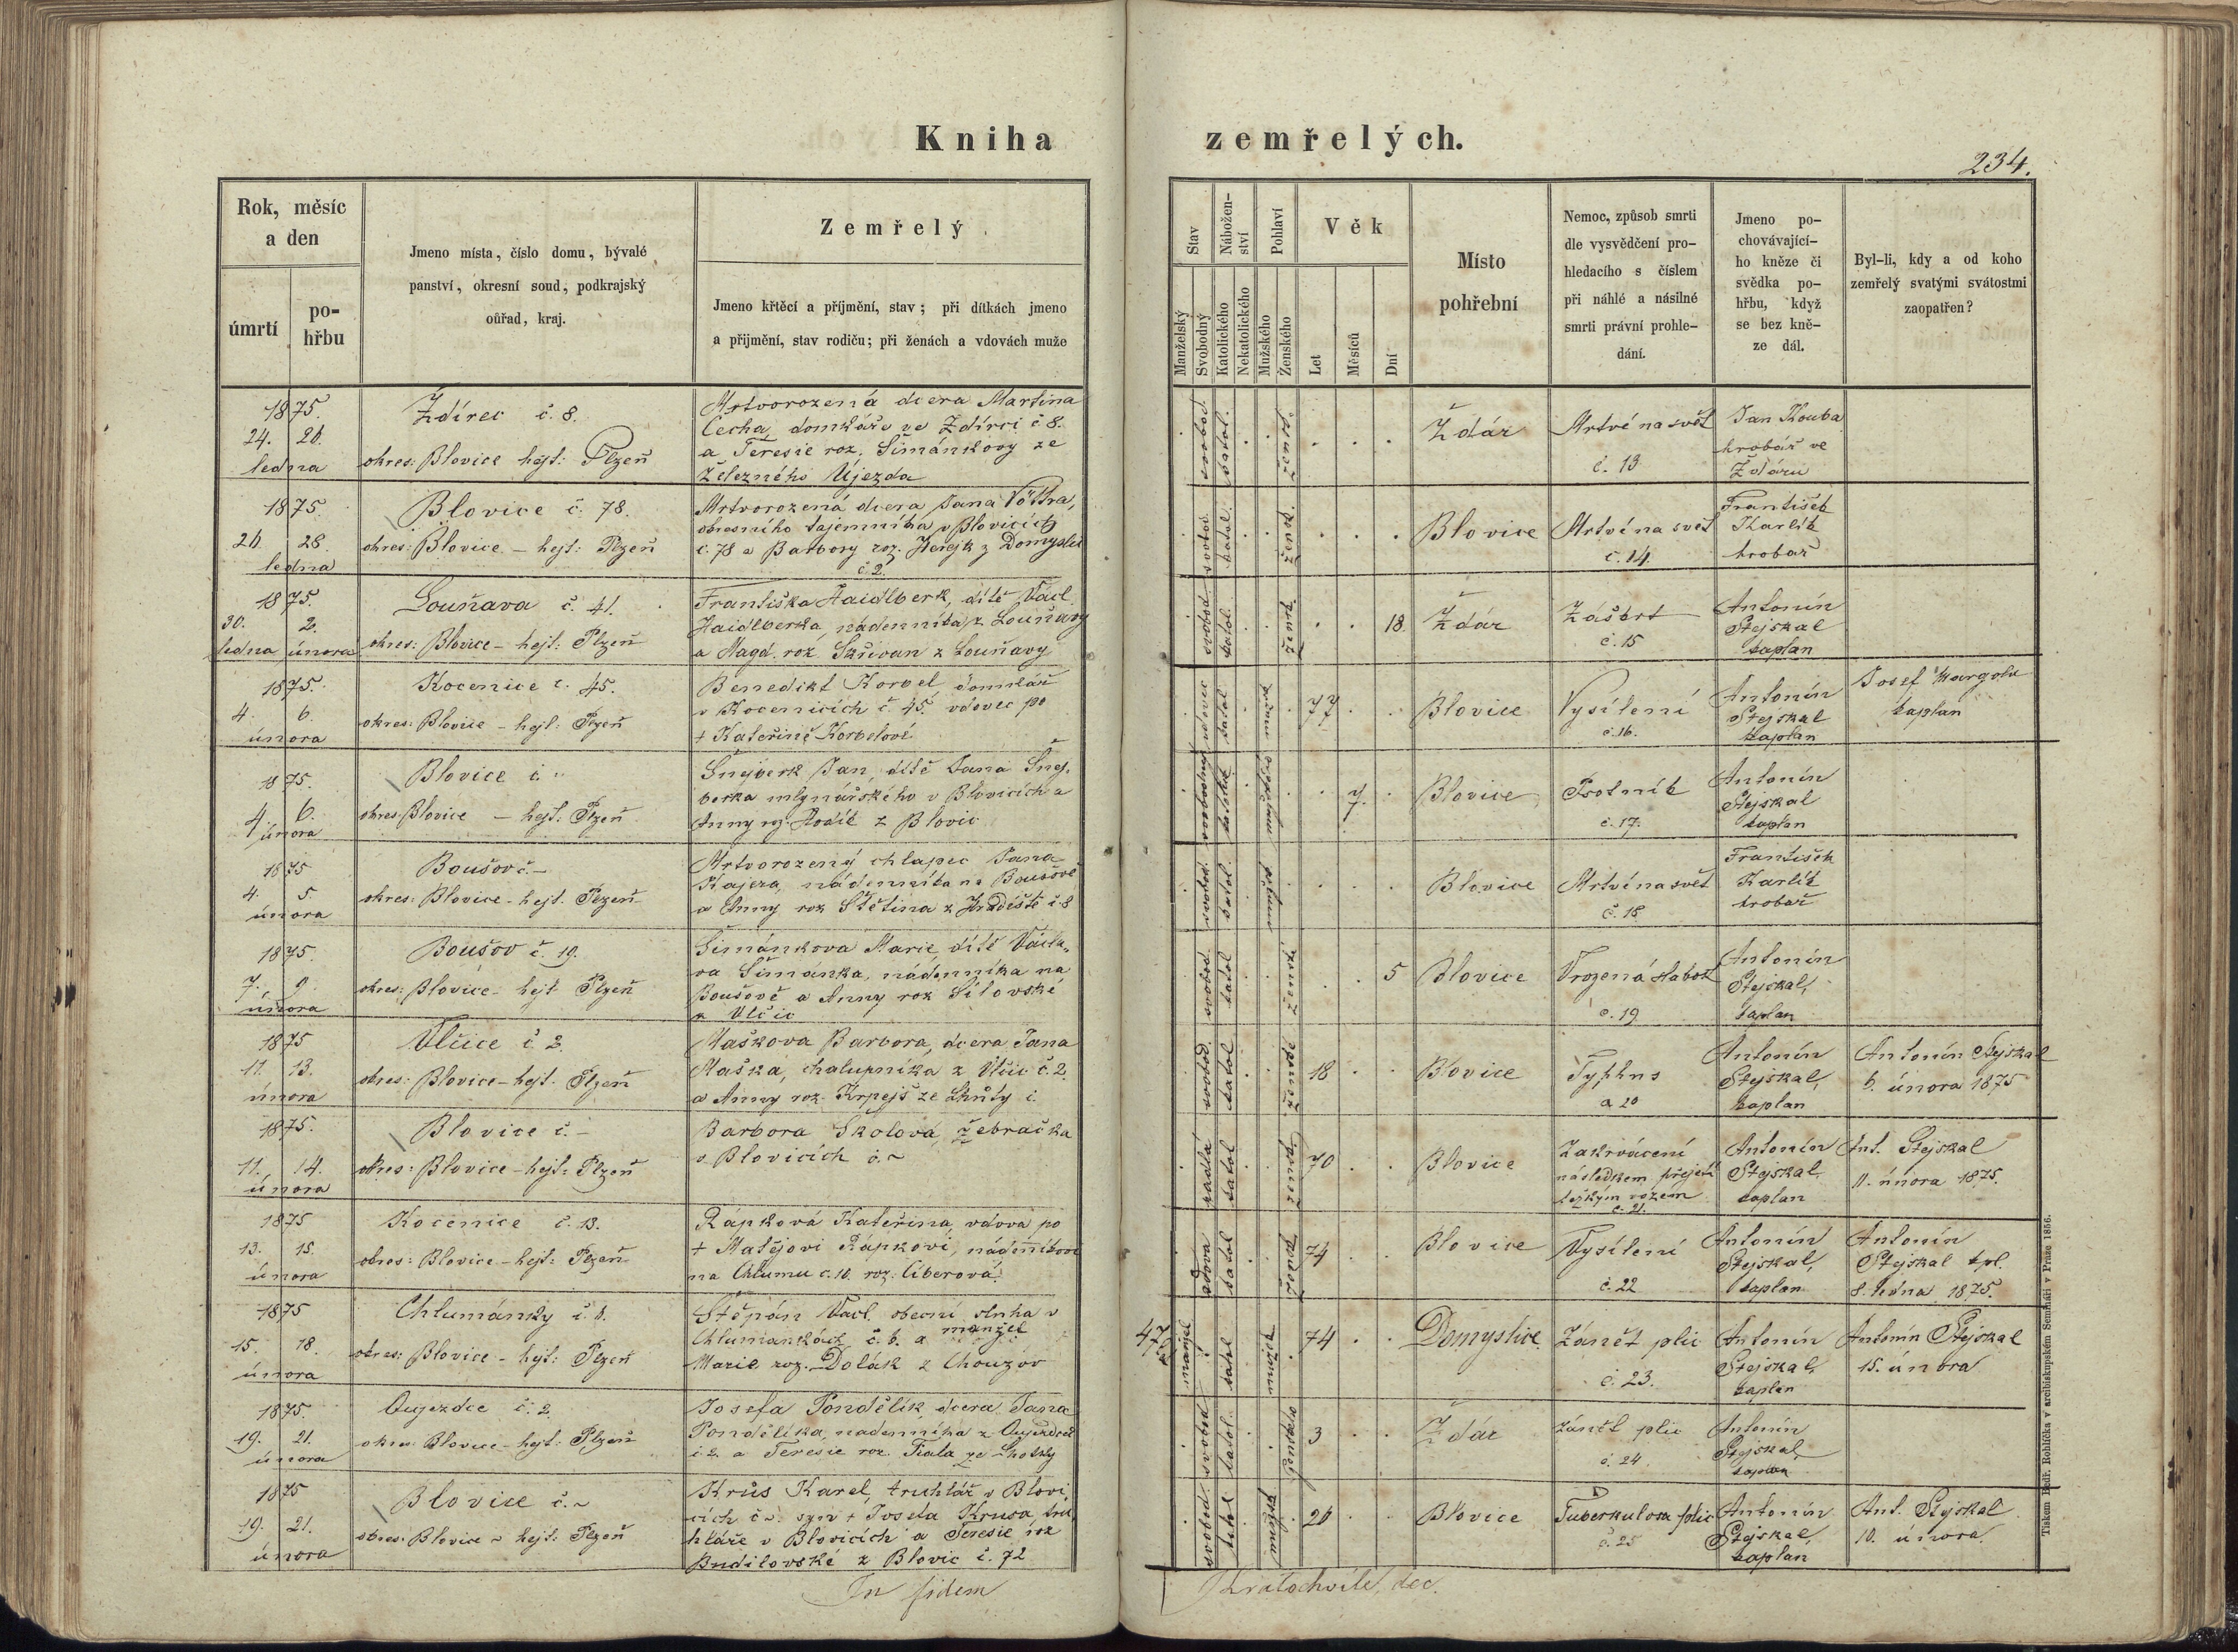 Kniha
zemřelých.
234.
Rok, měsíc
a den
úmrtí
po-
hřbu
Jmeno místa, číslo domu, bývalé
panství, okresní soud, podkrajský
ouřad, kraj.
Zemřelý
Jmeno křtěcí a příjmění, stav; při dítkách jmeno
a přijmění, stav rodiču; při ženách a vdovách muže
Stav
Nábožen-
ství
Pohlaví
Věk
Manželský
Svobodný
Katolického
Nekatolického
Mužského
Ženského
Let
Měsíců
Dní
Místo
pohřební
Nemoc, způsob smrti
dle vysvědčení pro-
hledacího s číslem
při náhlé a násilné
smrti právní prohle-
dání.
Jmeno po-
chovávající-
ho kněze či
svědka po-
hřbu, když
se bez kně-
ze dál.
Byl-li, kdy a od koho
zemřelý svatými svátostmi
zaopatřen?
1875.
24. 26.
ledna
Ždírec č. 8.
okres: Blovice hejt: Plzeň
Mrtvorozená dcera Martina
Čecha, domkáře ve Ždírci č 8.
a Teresie roz. Šimánkovy ze
Železného Újezda
svobod. katol. žensk.
Ždár
Mrtvé na svět
č. 13
Jan Kouba
hrobář ve
Ždáru
1875.
26. 28.
ledna
Blovice č. 78.
okres: Blovice - hejt: Plzeň
Mrtvorozená dcera Jana
okresního tajemníka v Blovicích
č. 78 a Barbory roz. Herejk z Domyslic
č. 2.
svobod. katol. žensk.
Blovice
Mrtvé na svět
č. 14.
František
Karlík
hrobař
1875.
30. 2.
ledna února
Louňava č. 41.
okres: Blovice - hejt: Plzeň
Františka Haidlberk, dítě Václ.
Haidlberka, nádenníka z Louňavy
a Magd. roz. Skřivan z Louňavy
svobod. katol. žensk.
18.
Ždár
Záškrt
č. 15
Antonín
Stejskal
kaplan
1875.
4. 6.
února
Kocenice č. 45.
okres: Blovice - hejt: Plzeň
Benedikt Korbel, domkář
v Kocenicích č. 45. vdovec po
+ Kateřině Korbelové
vdovec katol.
77
Blovice
Vysílení
č. 16.
Antonín
Stejskal
kaplan
Josef Margold
kaplan
1875.
4. 6.
února
Blovice č. "
okres: Blovice - hejt: Plzeň
Šnejberk Jan, dítě Jana Šnej-
berka mlynářského v Blovicích a
Anny roz. z Blovic
svobodný
7.
Blovice
Psotník
č. 17.
Antonín
Stejskal
kaplan
1875
4. 5.
února
Boušov č. -
okres: Blovice - hejt. Plzeň
Mrtvorozený chlapec Jana
Kajera, nádenníka na Boušově
a Anny roz Štětina z Hradiště č. 8
svobod. katol.
Blovice
Mrtvé na svět
č. 18
František
Karlík
hrobař
1875.
7. 9.
února
Boušov č. 19.
okres: Blovice - hejt Plzeň
Šimánkova Marie, dítě Václa-
va Šimánka, nádenníka na
Boušově a Anny roz Silovské
z Vlčic
svobod. katol ženské
5
Blovice
Vrozená slabost
č. 19
Antonín
Stejskal,
kaplan
1875
11. 13.
února
Vlčice č 2.
okres: Blovice - hejt. Plzeň
Maškova Barbora, dcera Jana
Maška, chalupníka z Vlčic č. 2
a Anny roz. Krpejš ze Lhůty č.
svobod. katol
18
Blovice
Typhus
č 20
Antonín
Stejskal,
kaplan
Antonín Stejskal
6. února 1875
1875.
11. 14.
února
Blovice č. -
okres: Blovice - hejt: Plzeň
Barbora Skolová, žebračka
v Blovicích č. ~
katol
70
Blovice
Zakrvácení
následkem přejetí
těžkým vozem
č. 21.
Antonín
Stejskal
kaplan
Ant. Stejskal
11. února 1875.
1875
13. 15.
února
Kocenice č. 13.
okres: Blovice - hejt: Plzeň
Rápková Kateřina, vdova po
+ Matějovi Rápkovi, nádenníkovi
na Chlumu č. 10. roz. Ciberová.
vdova katol
74
Blovice
Vysílení
č. 22
Antonín
Stejskal,
kaplan
Antonín
Stejskal kpl.
8. ledna 1875.
1875
15. 18.
února
Chlumánky č. 6.
okres: Blovice - hejt: Plzeň
Štěpán Vacl. obecní sluha v
Chlumánkách č. 6. a manžel
Marie roz. Dolák z Chouzov
47
manžel
74
Domyslice
Zánět plic
č. 23.
Antonín
Stejskal,
kaplan
Antonín Stejskal
15. února
1875.
19. 21.
února
Oujezdce č. 2.
okres Blovice - hejt: Plzeň
Josefa Pondělík, dcera Jana
Pondělíka, nadenníka z Oujezdce
č. 2. a Teresie roz. Fiala ze Lhotky
svobod katol.
3
Ždár
Zánět plic
č. 24
Antonín
Stejskal,
kaplan
1875
19. 21.
února
Blovice č. ~
okres: Blovice ~ hejt: Plzeň
Krůs Karel, truhlář v Blovi
cích č ~. syn + Josefa Krusa, tru
hláře v Blovicích a Teresie roz
Budilovské z Blovic č. 72
svobod.
26
Blovice
Tuberkulosa plic
č. 25
Antonín
Stejskal,
kaplan
Ant. Stejskal
10. února.
In fidem
Kratochvíle, dec.
Tiskem Bedř. Rohlíčka v arcibiskupském Semináři v Praze 1856.